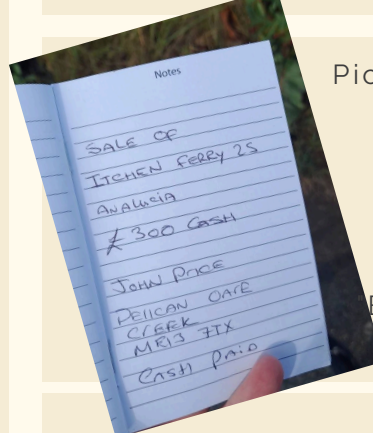 Notes
SALE OF
ITCHEN FERRY 25
ANALUCIA
£ 300 CASH
JOHN PRICE
PELICAN
CREEK
ME13 7TX
CASH PAID
Pic